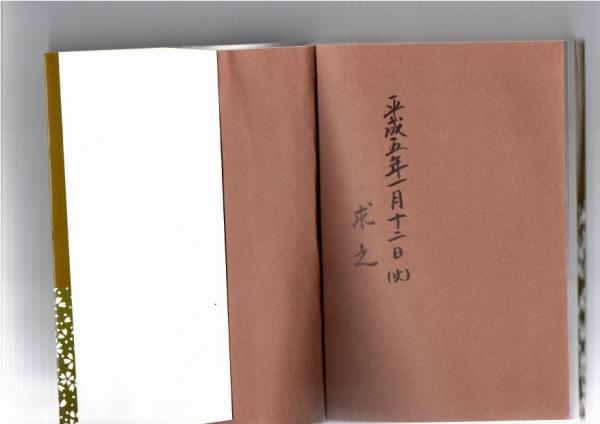 平成五年一月十二日(火)
求之